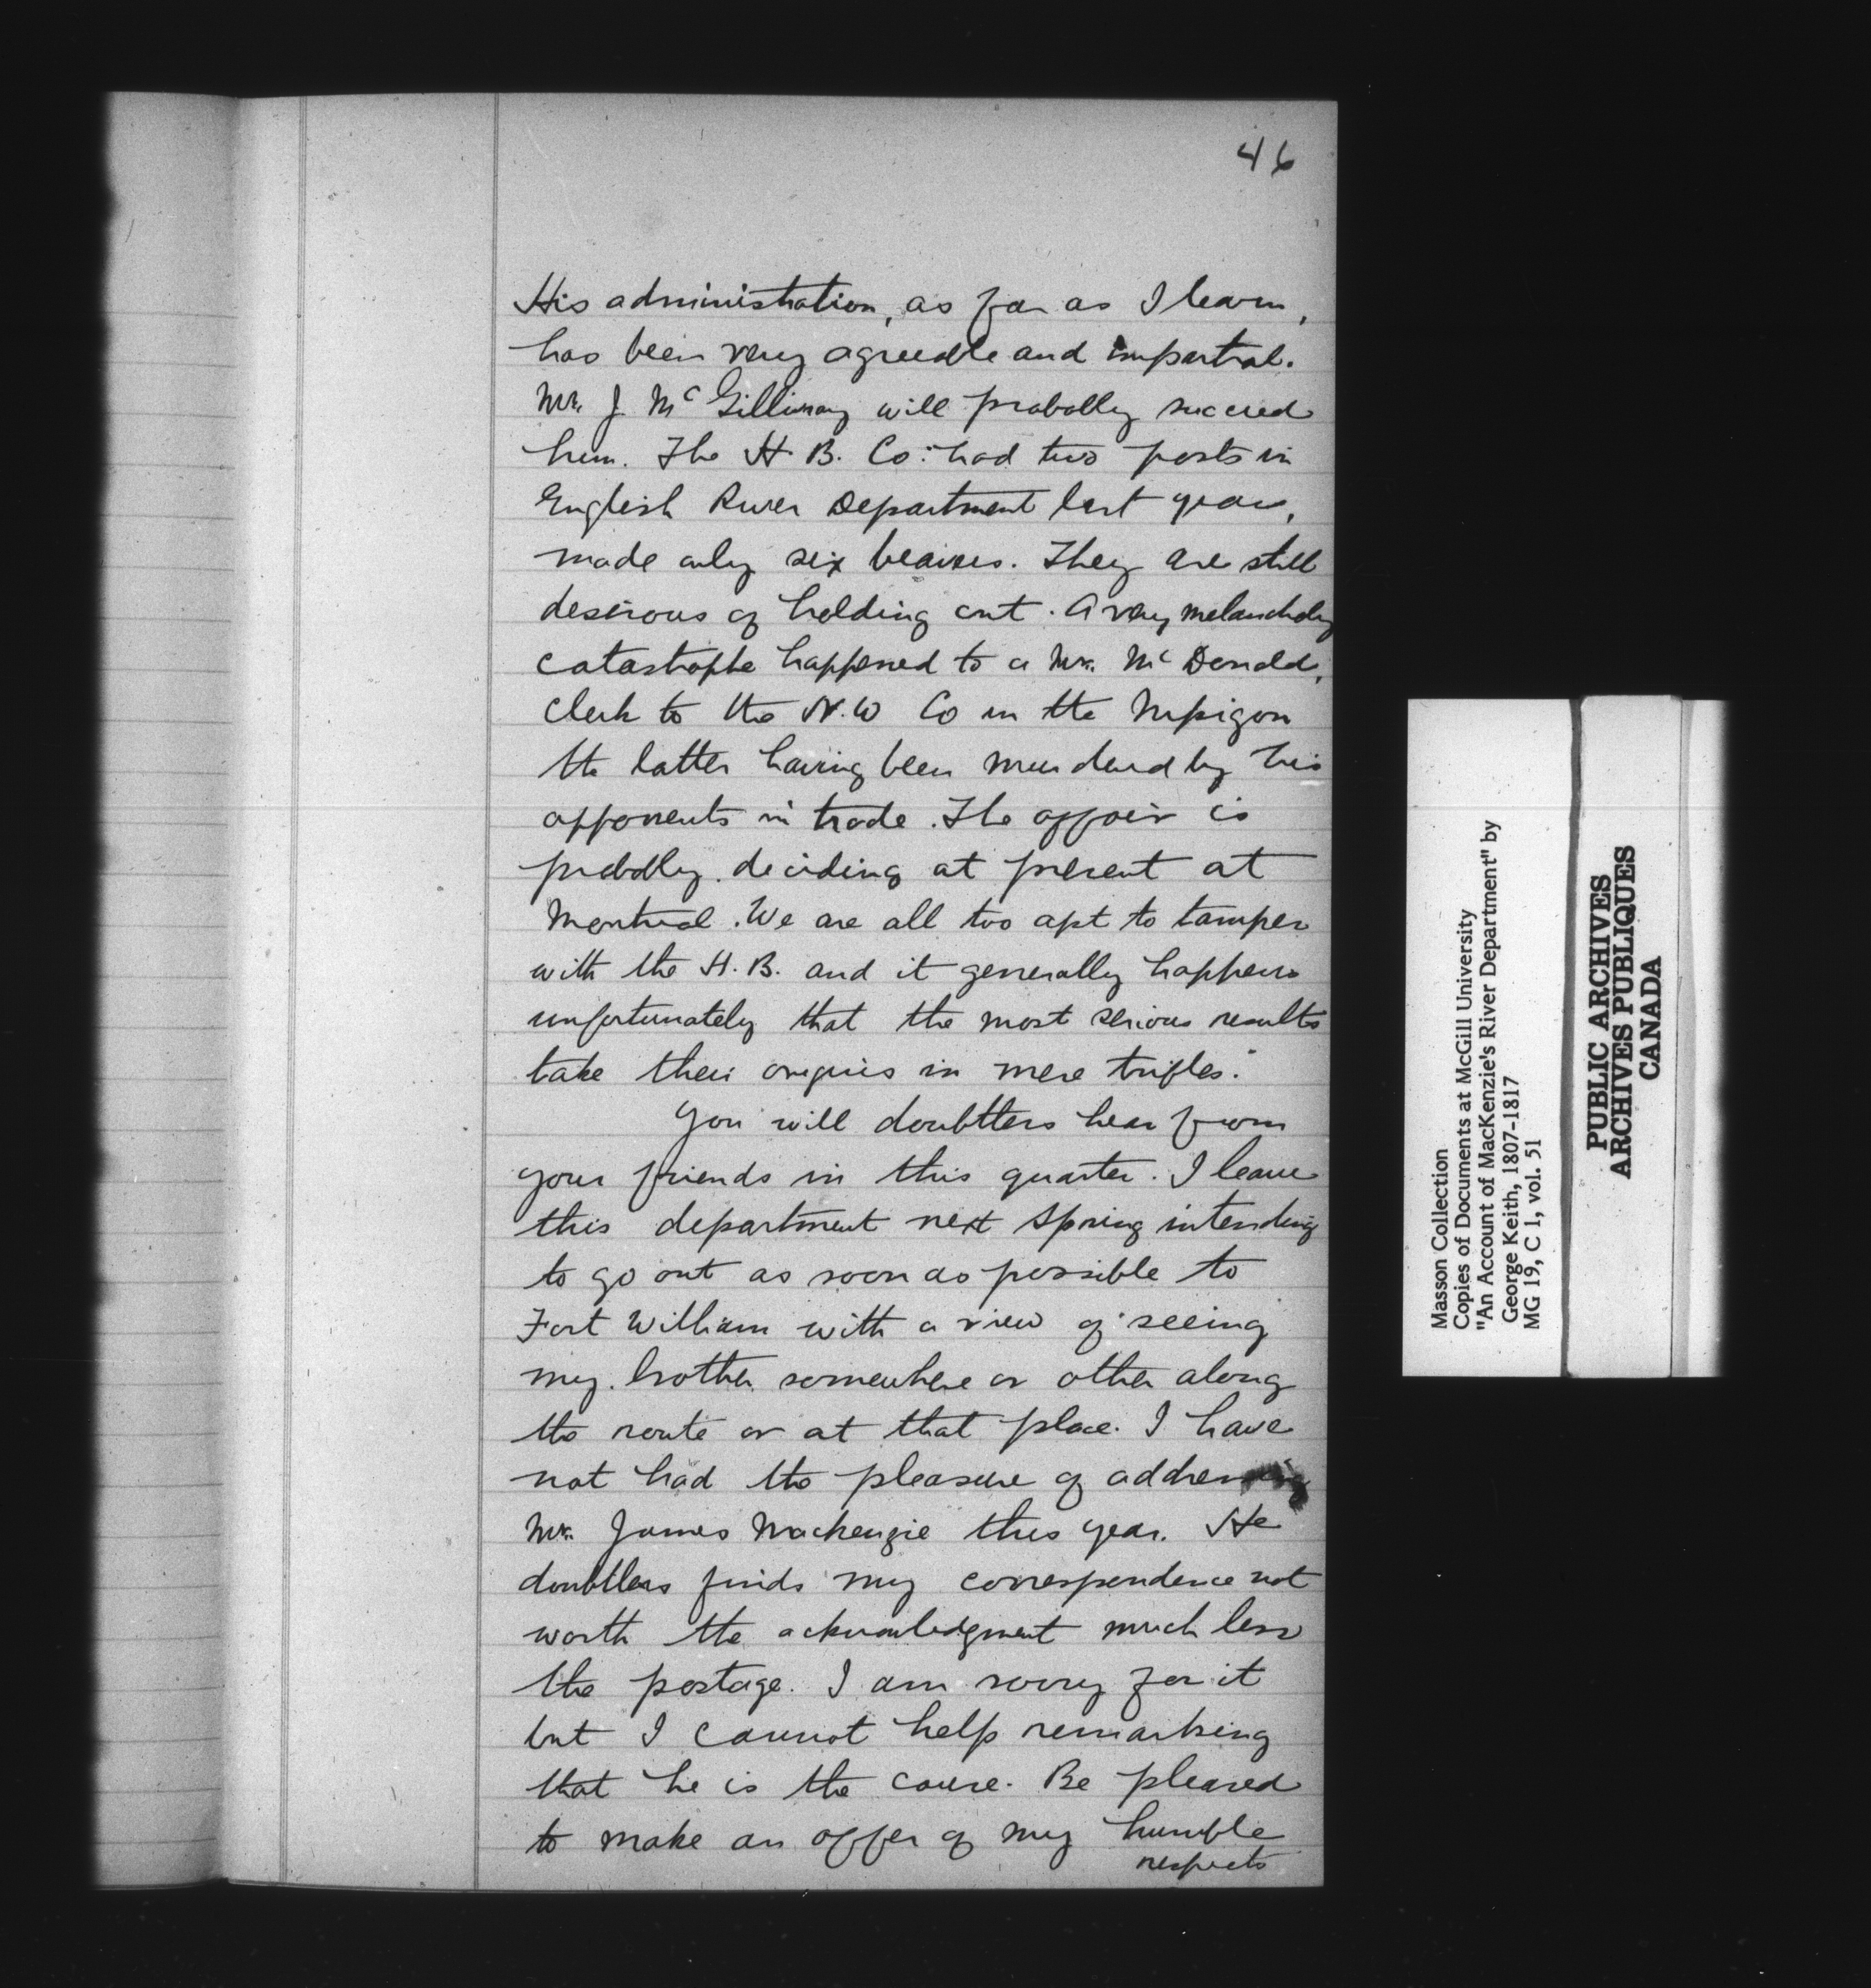 46
His administration, as far as I learn,
has been very agreeable and impartial.
Mr. J McGillivray will probably succeed
him. The H. B. Co: had two posts in
English River Department last year,
made only six beavers. They are still
desirous of holding out. A very melancholy
catastrophe happened to a Mr. Mc Donald,
Clerk to the N.W Co in the Nipigon
the latter having been murdered by his
opponents in trade. The affair is
probably deciding at present at
Montreal. We are all too apt to tamper
with the H. B. and it generally happens
unfortunately that the most serious results
take their origins in mere trifles."
You will doubtless hear from
your friends in this quarter. I leave
this department next Spring intending
to go out as soon as possible to
Fort William with a view of seeing
my brother somewhere or other along
the route or at that place. I have
not had the pleasure of addressing
Mr. James Mackenzie this year. He
doubtless finds my correspondence not
worth the acknowledgment much less
the postage. I am sorry for it
but I cannot help remarking
that he is the cause. Be pleased
to make an offer of my humble
respects
Masson Collection
Copies of Documents at McGill University
"An Account of MacKenzie's River Department" by
George Keith, 1807-1817
MG 19, C 1, vol. 51
PUBLIC ARCHIVES
ARCHIVES PUBLIQUES
CANADA